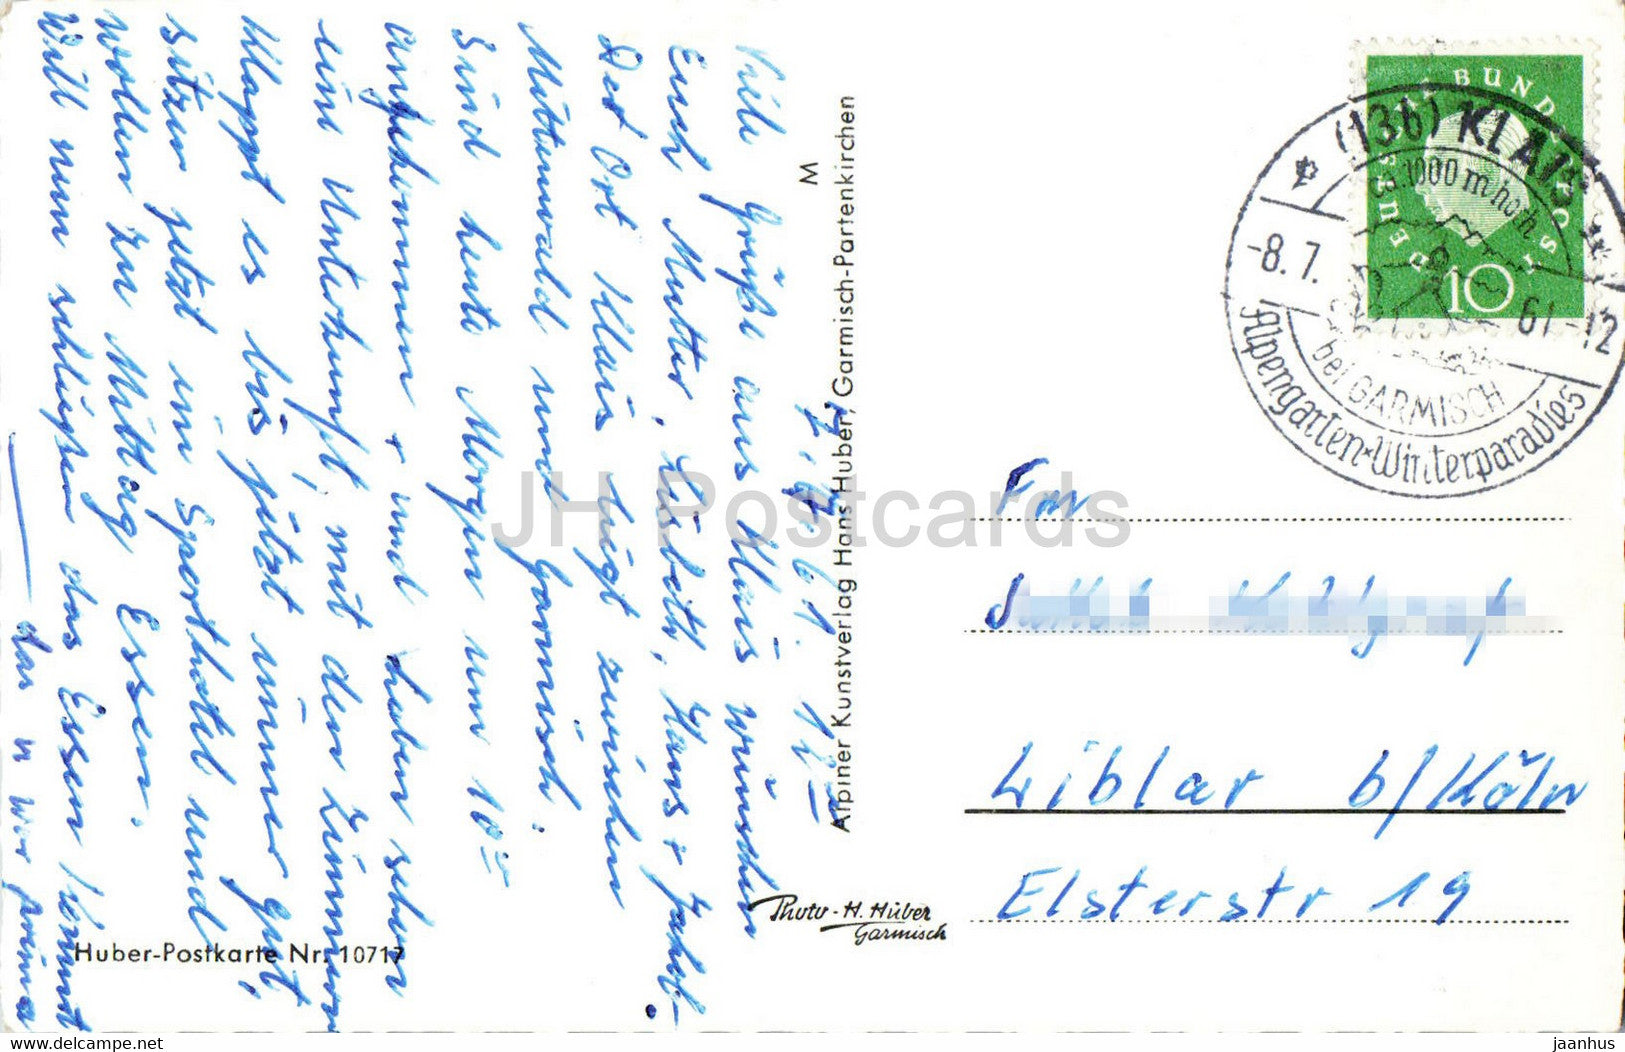 7.7.61. 12
Viele Grüße aus Klais wünschen
Euch Mutter, Lisbeth, Hans + Jakob.
Der Ort Klais liegt zwischen
Mittenwald und Garmisch.
Sind heute Morgen um 10
angekommen + und haben schon
eine Unterkunft, mit den Zimmern
klappt es bis jetzt immer gut,
sitzen jetzt im Sporthotel und
wollen zu Mittag Essen.
Will nun schließen das Essen kommt
das war prima
Huber-Postkarte Nr. 10717
M
Alpiner Kunstverlag Hans Huber, Garmisch-Partenkirchen
Photo-H. Huber
Garmisch
DEUTSCHE BUNDESPOST
10
(13b) KLAIS
1000 m hoch
-8.7. 61-12
bei GARMISCH
Alpengarten·Winterparadies
Liblar b/Köln
Elsterstr 19
JH Postcards
www.delcampe.net
jaanhus